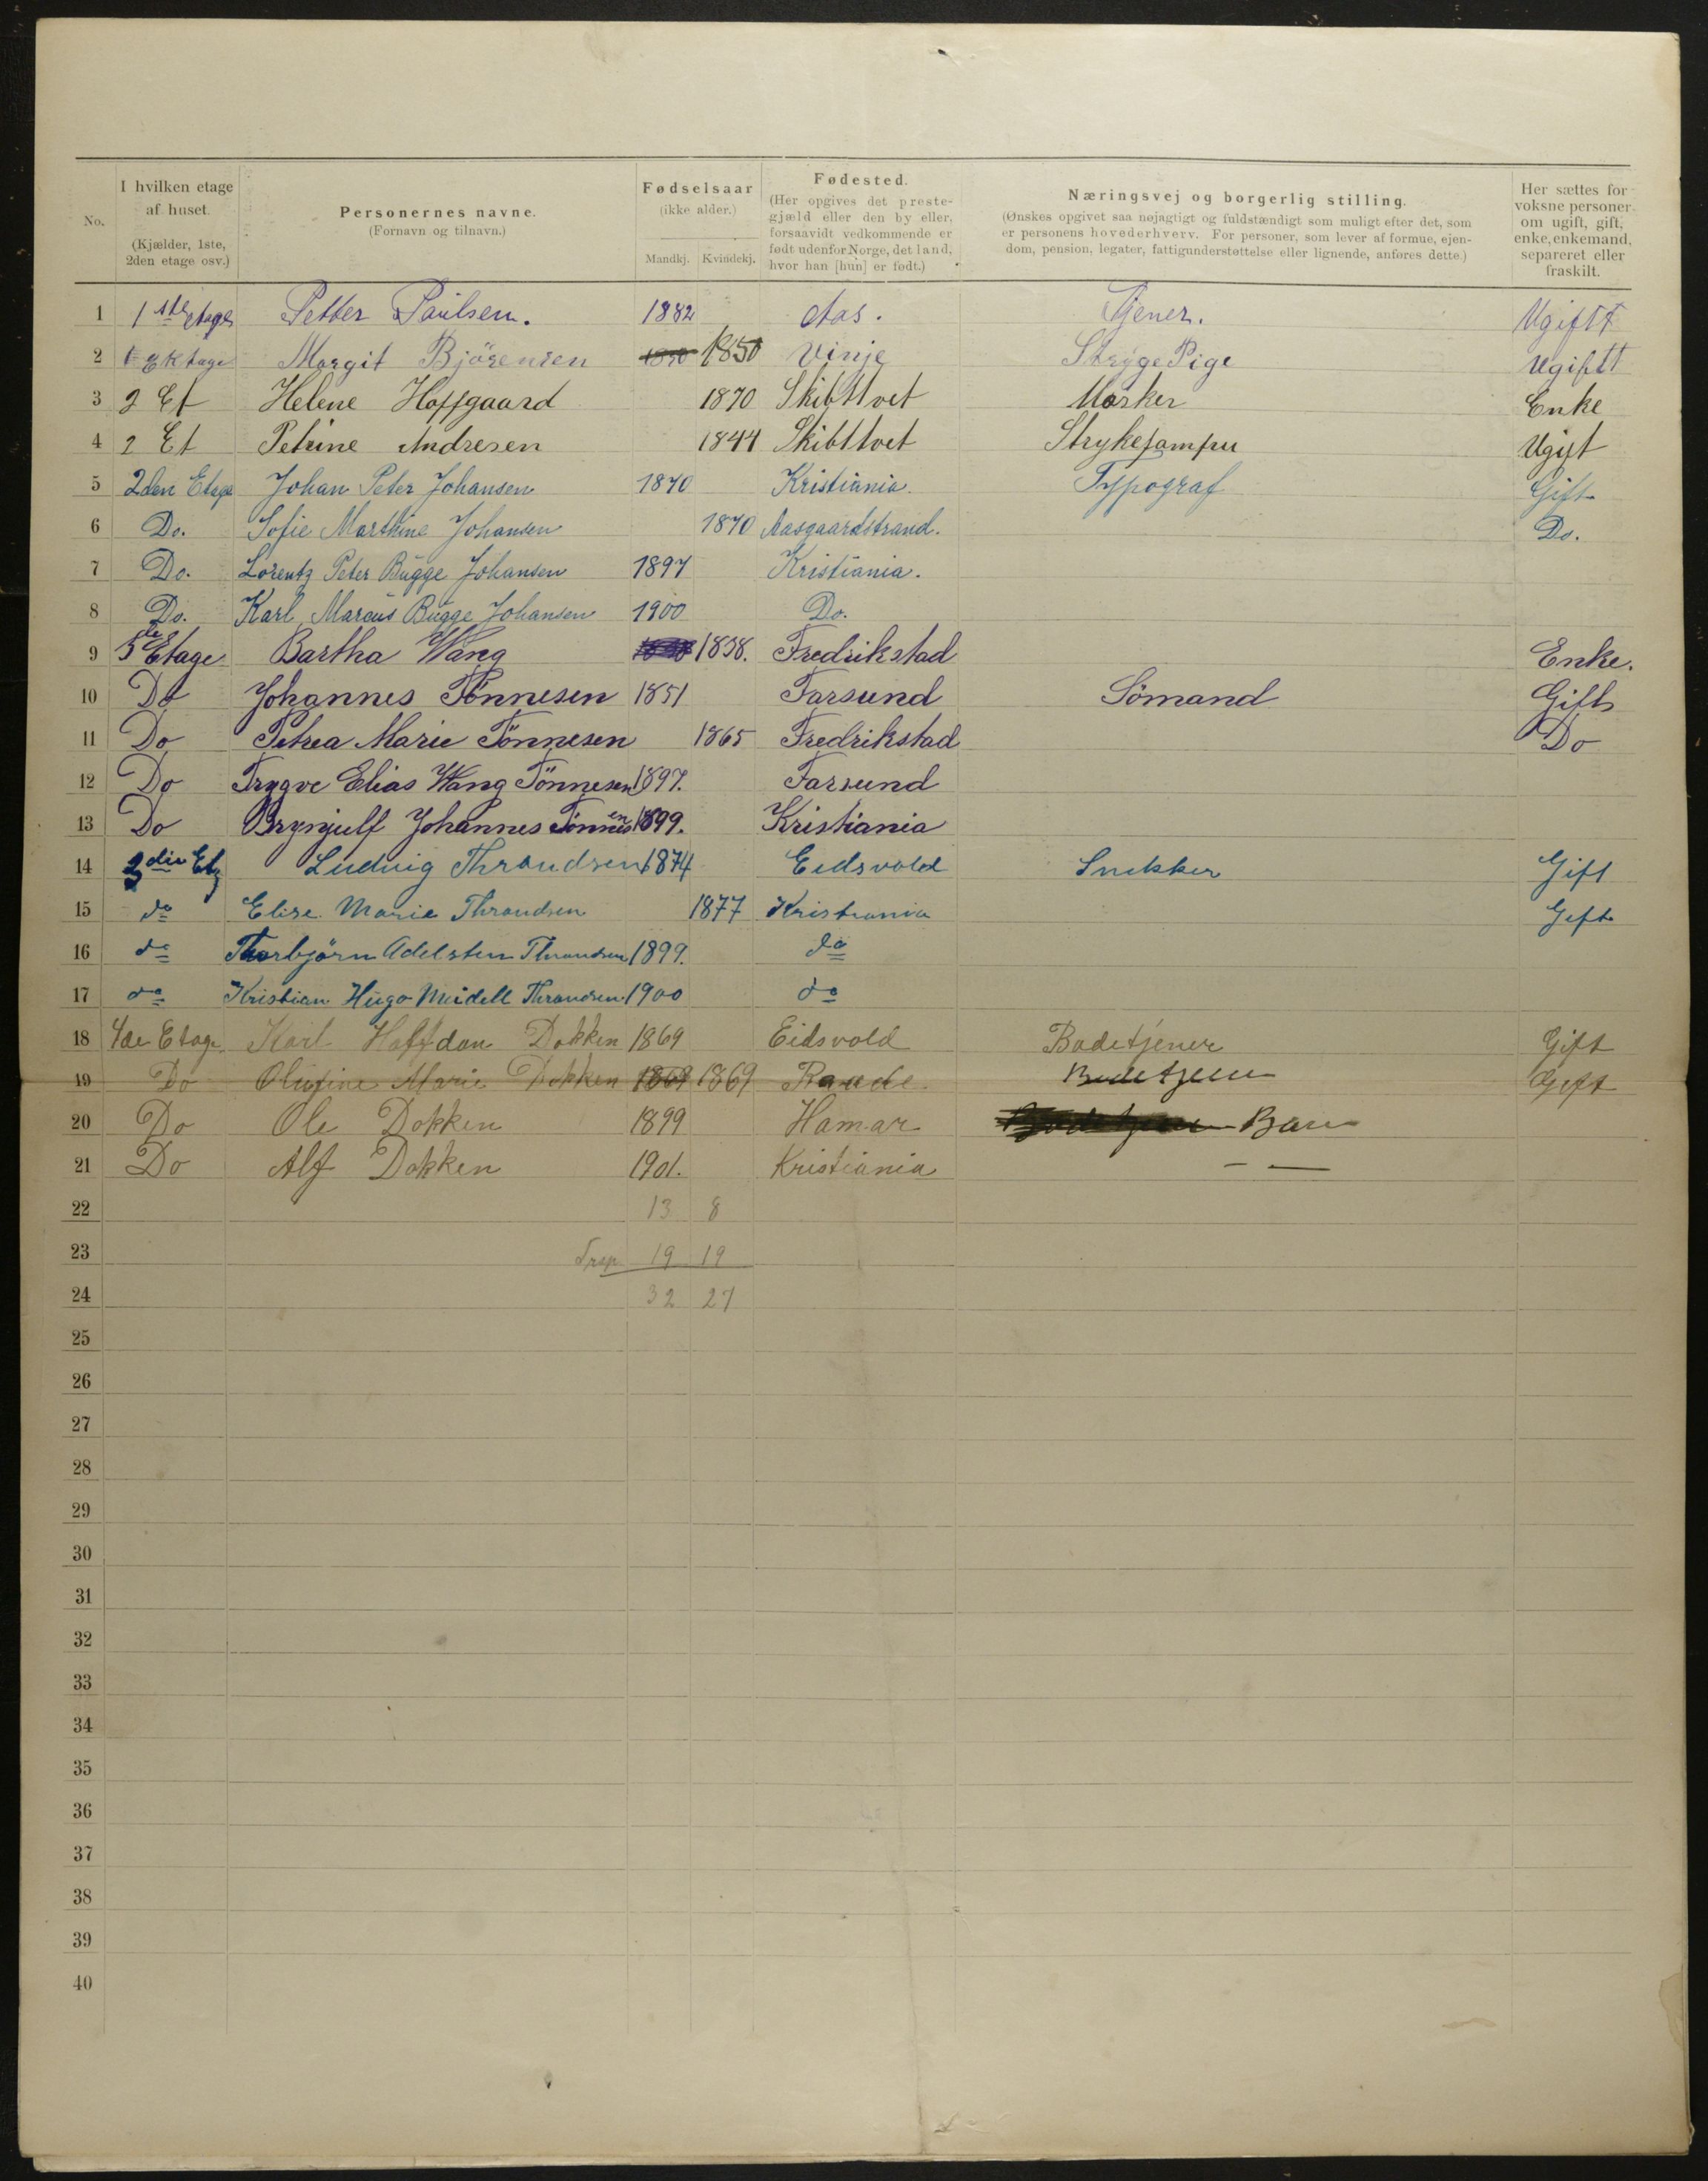 No. I hvilken etage af huset. (Kjælder, 1ste, 2den etage osv.) Personernes navne. (Fornavn og tilnavn.) Fødselsaar (ikke alder.) Mandkj. Kvindekj. Fødested. (Her opgives det prestegjæld eller den by eller, forsaavidt vedkommende er født udenfor Norge, det land, hvor han [hun] er født.) Næringsvej og borgerlig stilling. (Ønskes opgivet saa nøjagtigt og fuldstændigt som muligt efter det, som er personens hovederhverv. For personer, som lever af formue, ejendom, pension, legater, fattigunderstøttelse eller lignende, anføres dette.) Her sættes for voksne personer om ugift, gift, enke, enkemand, separeret eller fraskilt.
1 1ste etage Petter Paulsen. 1882 Aas. Tjener. Ugift
2 Margit 1850 Vinje Stryge Pige Ugiftt
3 2 Et Helene Hoffgaard 1870 Skibttvet Enke
4 2 Et Petrine Andresen 1844 Skibttvet Ugift
5 2den Etage Johan Peter Johansen 1870 Kristiania. Typograf Gift
6 Do. Sofie Marthine Johansen 1870 Aasgaardstrand. Do.
7 Do. Lorentz Peter Bugge Johansen 1897 Kristiania.
8 Do. Karl Marcus Bugge Johansen 1900 Do.
9 Etage Bartha Wang 1838. Fredrikstad Enke.
10 Do Johannes Tönnesen 1851 Farsund Sömand Gift
11 Do Petrea Marie Tönnesen 1865 Fredrikstad Do
12 Do Trygve Elias Wang Tönnesen 1897. Farsund
13 Do Brynjulf Johannes Tönnesen 1899. Kristiania
14 3die Etg Ludvig Throndsen 1874 Eidsvold Snekker Gift
15 do Elise Marie Throndsen 1877 Kristiania Gift
16 do Thorbjörn Adelsten Throndsen 1899. do
17 do Kristian Hugo Meidell Throndsen 1900 do
18 4de Etage Karl Halfdan Dokken 1869 Eidsvold Badetjener Gift
19 Do Olufine Marie Dokken 1869 1869 Raade Badetjener Gift
20 Do Ole Dokken 1899 Hamar Barn
21 Do Alf Dokken 1901. Kristiania — —
22 13 8
23 Trsp. 19 19
24 32 27
25
26
27
28
29
30
31
32
33
34
35
36
37
38
39
40